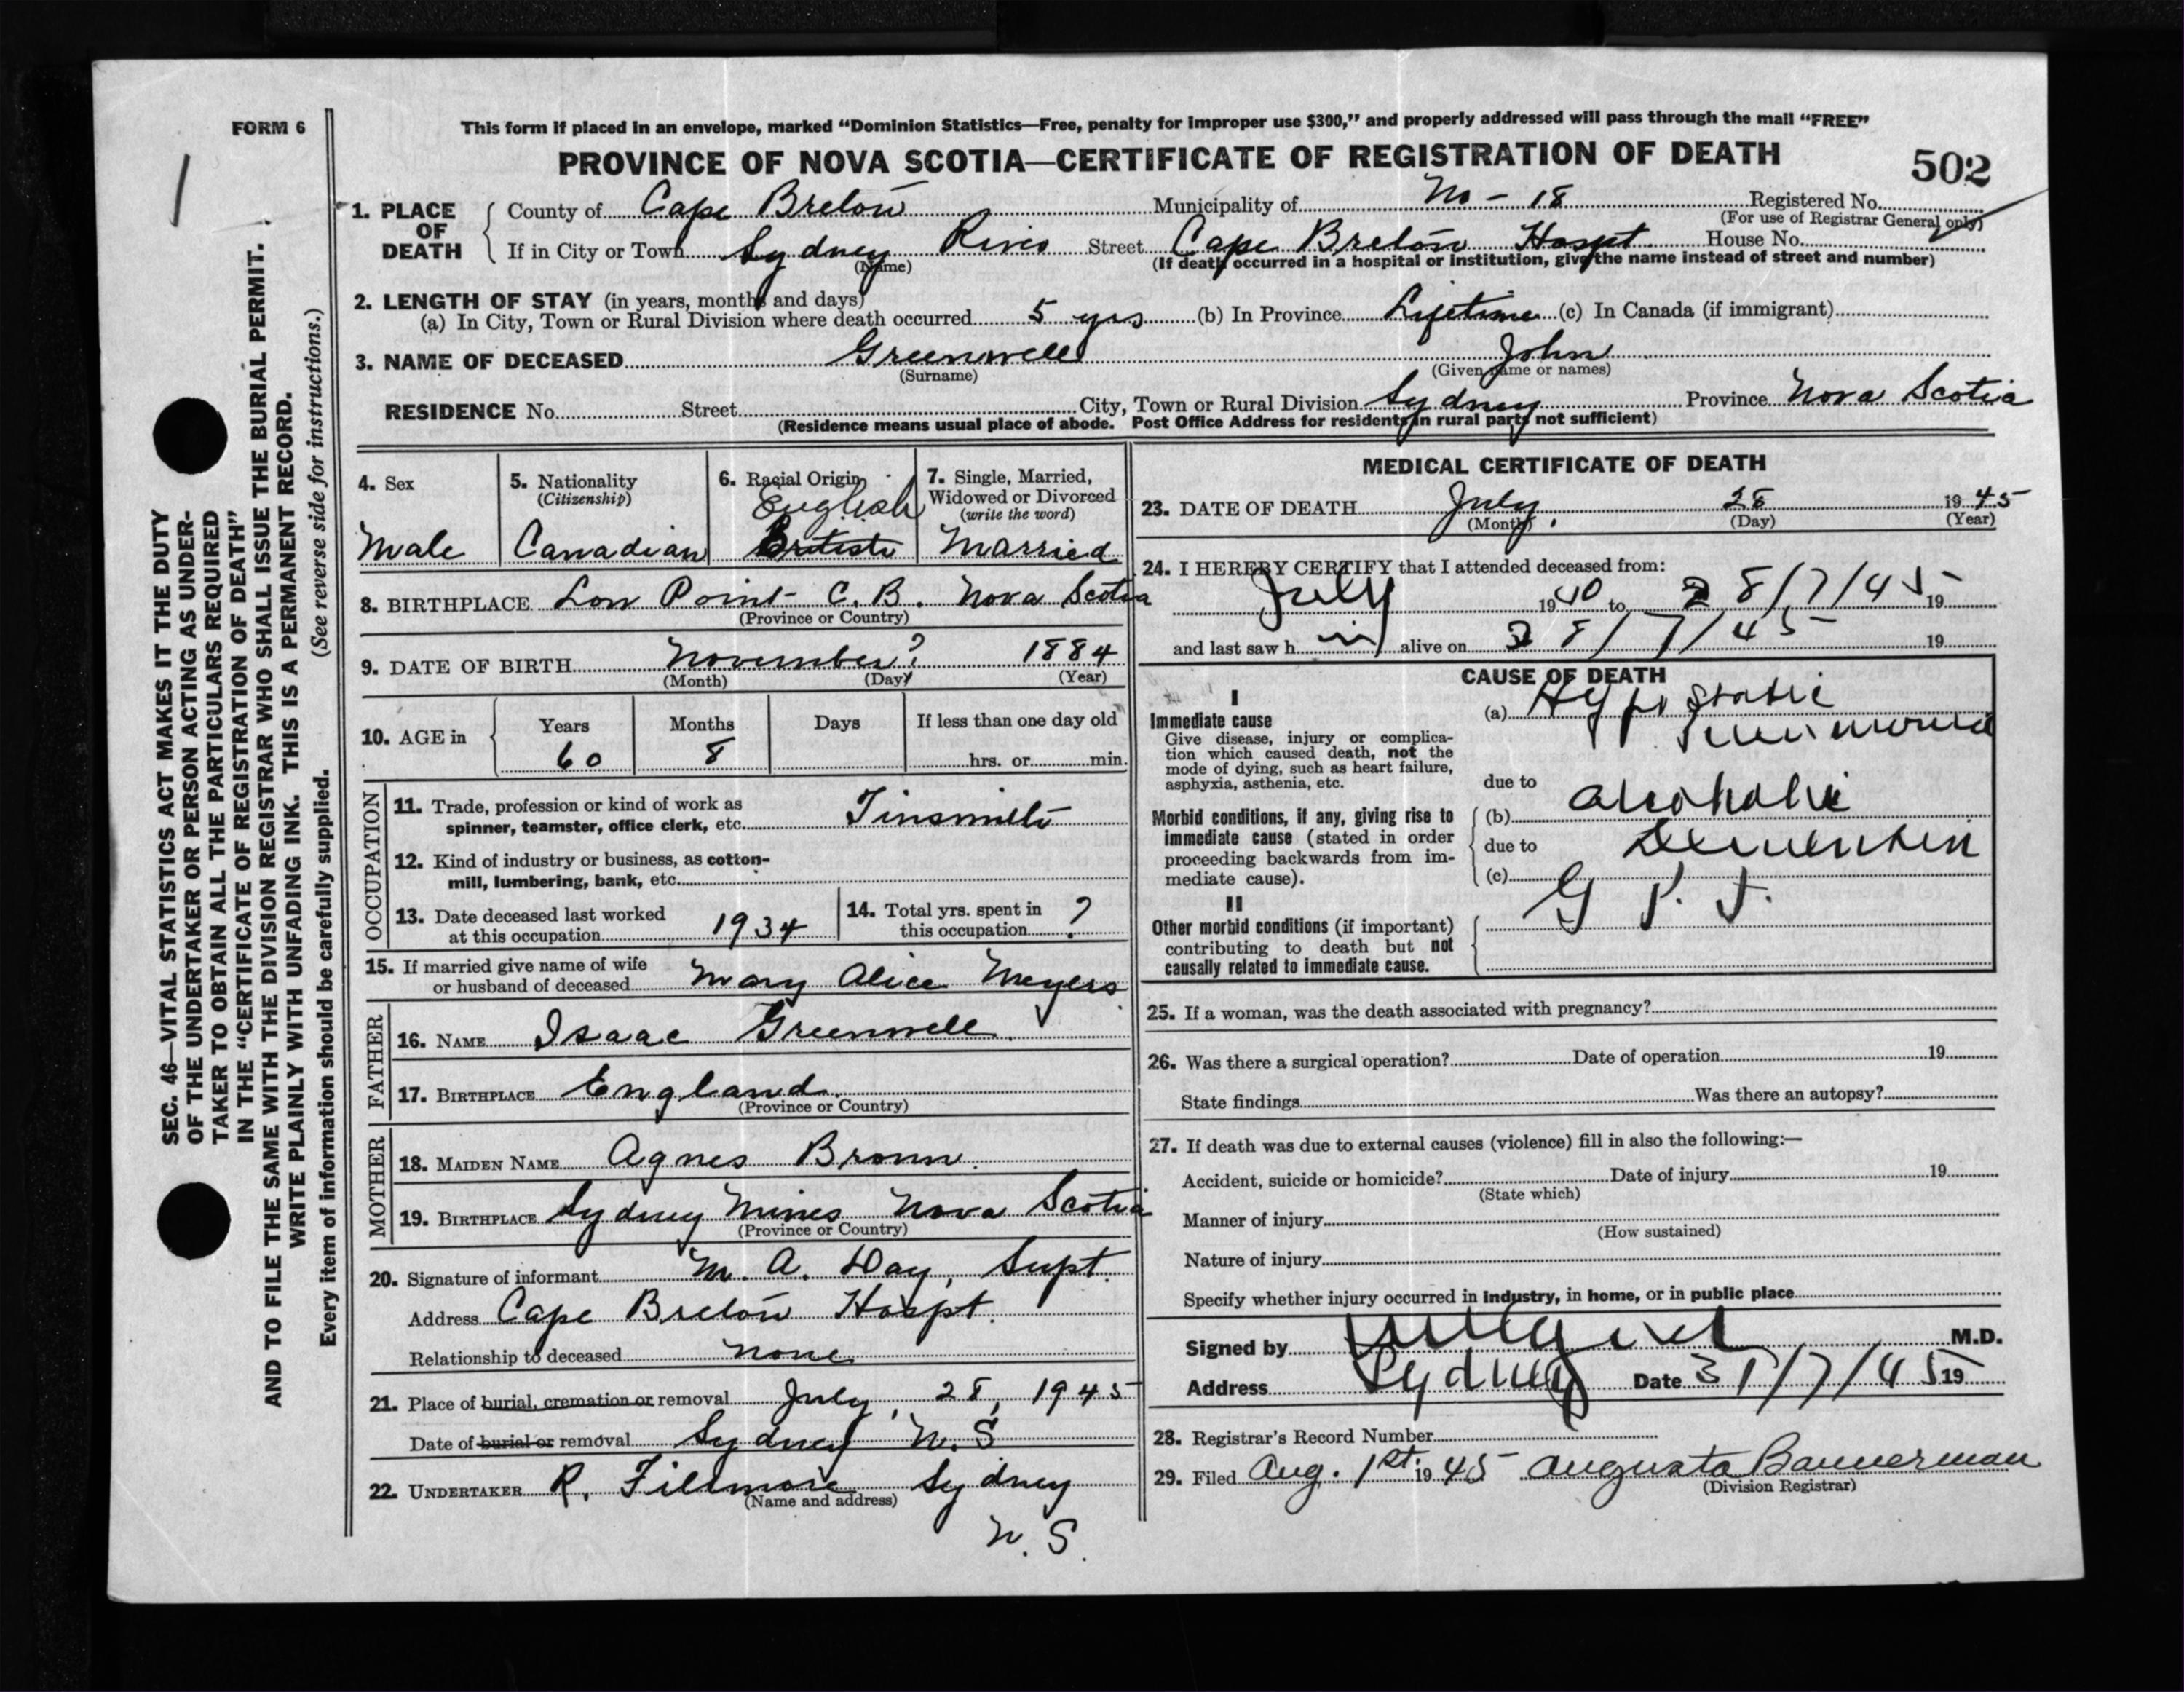 FORM 6
This form if placed in an envelope, marked “Dominion Statistics—Free, penalty for improper use $300,” and properly addressed will pass through the mail “FREE”
PROVINCE OF NOVA SCOTIA—CERTIFICATE OF REGISTRATION OF DEATH
502
1. PLACE OF DEATH
County of Cape Breton Municipality of No - 18 Registered No.
(For use of Registrar General only)
If in City or Town Sydney River Street Cape Breton Hospt. House No.
(Name) (If death occurred in a hospital or institution, give the name instead of street and number)
2. LENGTH OF STAY (in years, months and days)
(a) In City, Town or Rural Division where death occurred 5 yrs (b) In Province Lifetime (c) In Canada (if immigrant)
3. NAME OF DECEASED Greenwell John
(Surname) (Given name or names)
RESIDENCE No. Street City, Town or Rural Division Sydney Province Nova Scotia
(Residence means usual place of abode. Post Office Address for residents in rural parts not sufficient)
4. Sex
Male
5. Nationality
(Citizenship)
Canadian
6. Racial Origin
English
British
7. Single, Married,
Widowed or Divorced
(write the word)
Married
8. BIRTHPLACE Low Point C.B. Nova Scotia
(Province or Country)
9. DATE OF BIRTH November ? 1884
(Month) (Day) (Year)
10. AGE in
Years Months Days If less than one day old
60 8 hrs. or min.
OCCUPATION
11. Trade, profession or kind of work as
spinner, teamster, office clerk, etc. Tinsmith
12. Kind of industry or business, as cotton-
mill, lumbering, bank, etc.
13. Date deceased last worked
at this occupation 1934
14. Total yrs. spent in
this occupation ?
15. If married give name of wife
or husband of deceased Mary Alice Meyers
FATHER
16. NAME Isaac Greenwell
17. BIRTHPLACE England
(Province or Country)
MOTHER
18. MAIDEN NAME Agnes Brown
19. BIRTHPLACE Sydney Mines Nova Scotia
(Province or Country)
20. Signature of informant M. A. Day, Supt.
Address Cape Breton Hospt.
Relationship to deceased none
21. Place of burial, cremation or removal July, 28, 1945
Date of burial or removal Sydney N.S
22. UNDERTAKER R. Fillmore Sydney
(Name and address)
N.S.
MEDICAL CERTIFICATE OF DEATH
23. DATE OF DEATH July 28 1945
(Month) (Day) (Year)
24. I HEREBY CERTIFY that I attended deceased from:
July 1940 to 28/7/45 19
and last saw h im alive on 28/7/45 19
CAUSE OF DEATH
I
Immediate cause
Give disease, injury or complica-
tion which caused death, not the
mode of dying, such as heart failure,
asphyxia, asthenia, etc.
(a) Hypostatic
Pneumonia
due to
Morbid conditions, if any, giving rise to
immediate cause (stated in order
proceeding backwards from im-
mediate cause).
(b) Alcoholic
due to Dementia
(c) G P. I.
II
Other morbid conditions (if important)
contributing to death but not
causally related to immediate cause.
25. If a woman, was the death associated with pregnancy?
26. Was there a surgical operation? Date of operation 19
State findings Was there an autopsy?
27. If death was due to external causes (violence) fill in also the following:—
Accident, suicide or homicide? Date of injury 19
(State which)
Manner of injury
(How sustained)
Nature of injury
Specify whether injury occurred in industry, in home, or in public place
Signed by M.D.
Address Sydney Date 31/7/45 19
28. Registrar's Record Number
29. Filed Aug. 1st. 1945 Augusta Bannerman
(Division Registrar)
SEC. 46—VITAL STATISTICS ACT MAKES IT THE DUTY
OF THE UNDERTAKER OR PERSON ACTING AS UNDER-
TAKER TO OBTAIN ALL THE PARTICULARS REQUIRED
IN THE “CERTIFICATE OF REGISTRATION OF DEATH”
AND TO FILE THE SAME WITH THE DIVISION REGISTRAR WHO SHALL ISSUE THE BURIAL PERMIT.
WRITE PLAINLY WITH UNFADING INK. THIS IS A PERMANENT RECORD.
Every item of information should be carefully supplied. (See reverse side for instructions.)